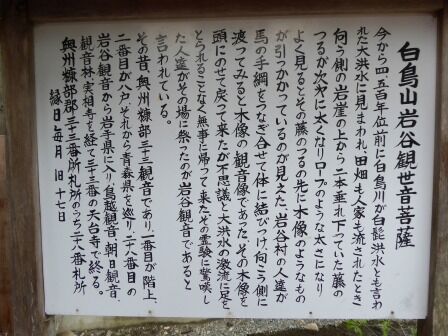 白鳥山岩谷観世音菩薩
今から四、五百年位前に白鳥川が白髭洪水とも言わ
れた大洪水に見まわれ田畑も人家も流されたとき
向う側の岩崖の上から二本垂れ下っていた藤の
つるが次々に太くなりロープのような太さになり
よく見るとその藤のつるの先に木像のようなもの
が引っかかっているのが見えた、岩谷村の人達が
馬の手綱をつなぎ合せて体に結びつけ向こう側に
渡ってみると木像の観音像であった。その木像を
頭にのせ戻って来たが不思議と大洪水の激流に足を
とられることなく無事に帰って来たその霊験に驚嘆し
た人達がその場に祭ったのが岩谷観音であると
言われている。
その昔、奥州糠部三十三観音であり一番目が階上、
二番目が八戸、それから青森県を巡り二十八番目の
岩谷観音から岩手県に入り鳥越観音、朝日観音、
観音林、実相寺を経て三十三番の天台寺で終る。
奥州糠部郡三十三番所札所のうち二十八番札所
縁日毎月 旧十七日